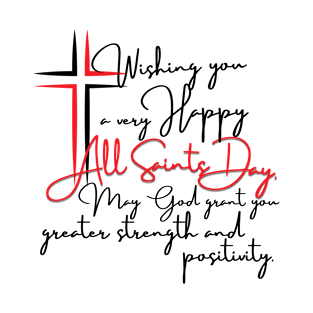 Wishing you
a very Happy
All Saints Day,
May God grant you
greater strength and
positivity.